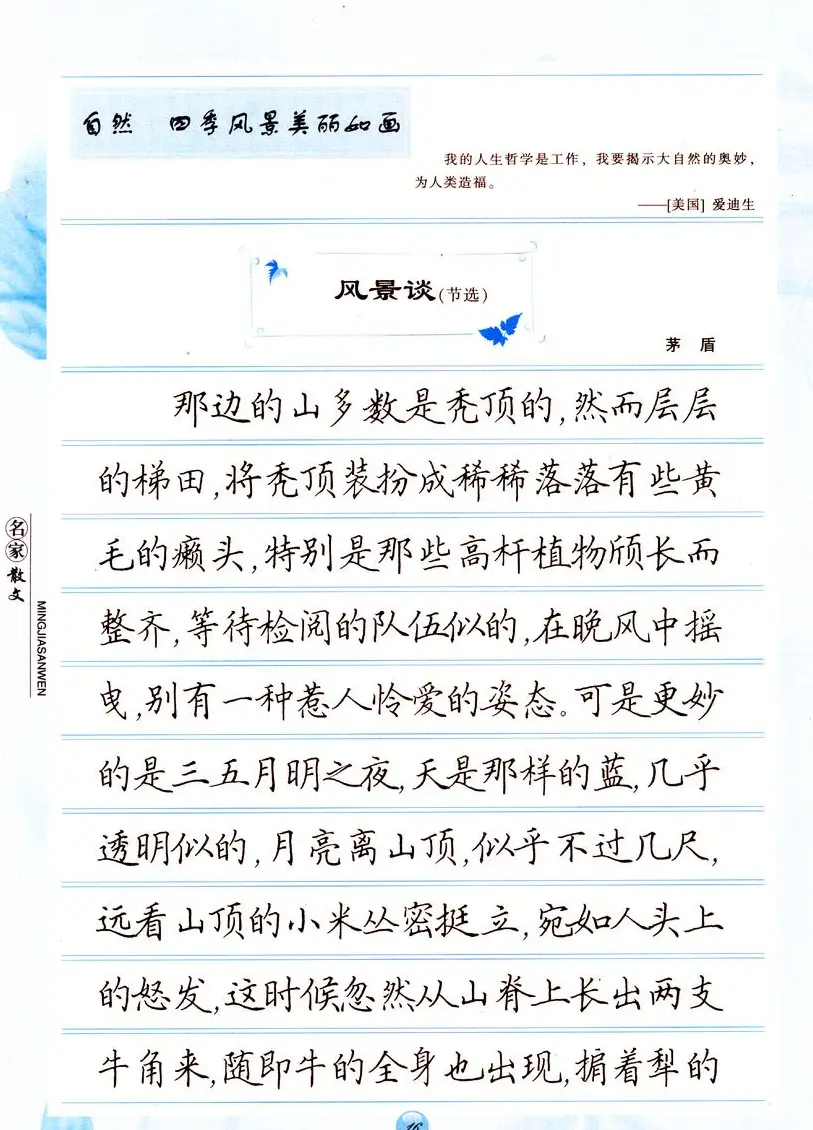 自然 四季风景美丽如画
我的人生哲学是工作，我要揭示大自然的奥妙，
为人类造福。
——[美国] 爱迪生
风景谈(节选)
茅 盾
那边的山多数是秃顶的,然而层层
的梯田,将秃顶装扮成稀稀落落有些黄
毛的癞头,特别是那些高杆植物颀长而
整齐,等待检阅的队伍似的,在晚风中摇
曳,别有一种惹人怜爱的姿态。可是更妙
的是三五月明之夜,天是那样的蓝,几乎
透明似的,月亮离山顶,似乎不过几尺,
远看山顶的小米丛密挺立,宛如人头上
的怒发,这时候忽然从山脊上长出两支
牛角来,随即牛的全身也出现,掮着犁的
名家散文
MINGJIASANWEN
16